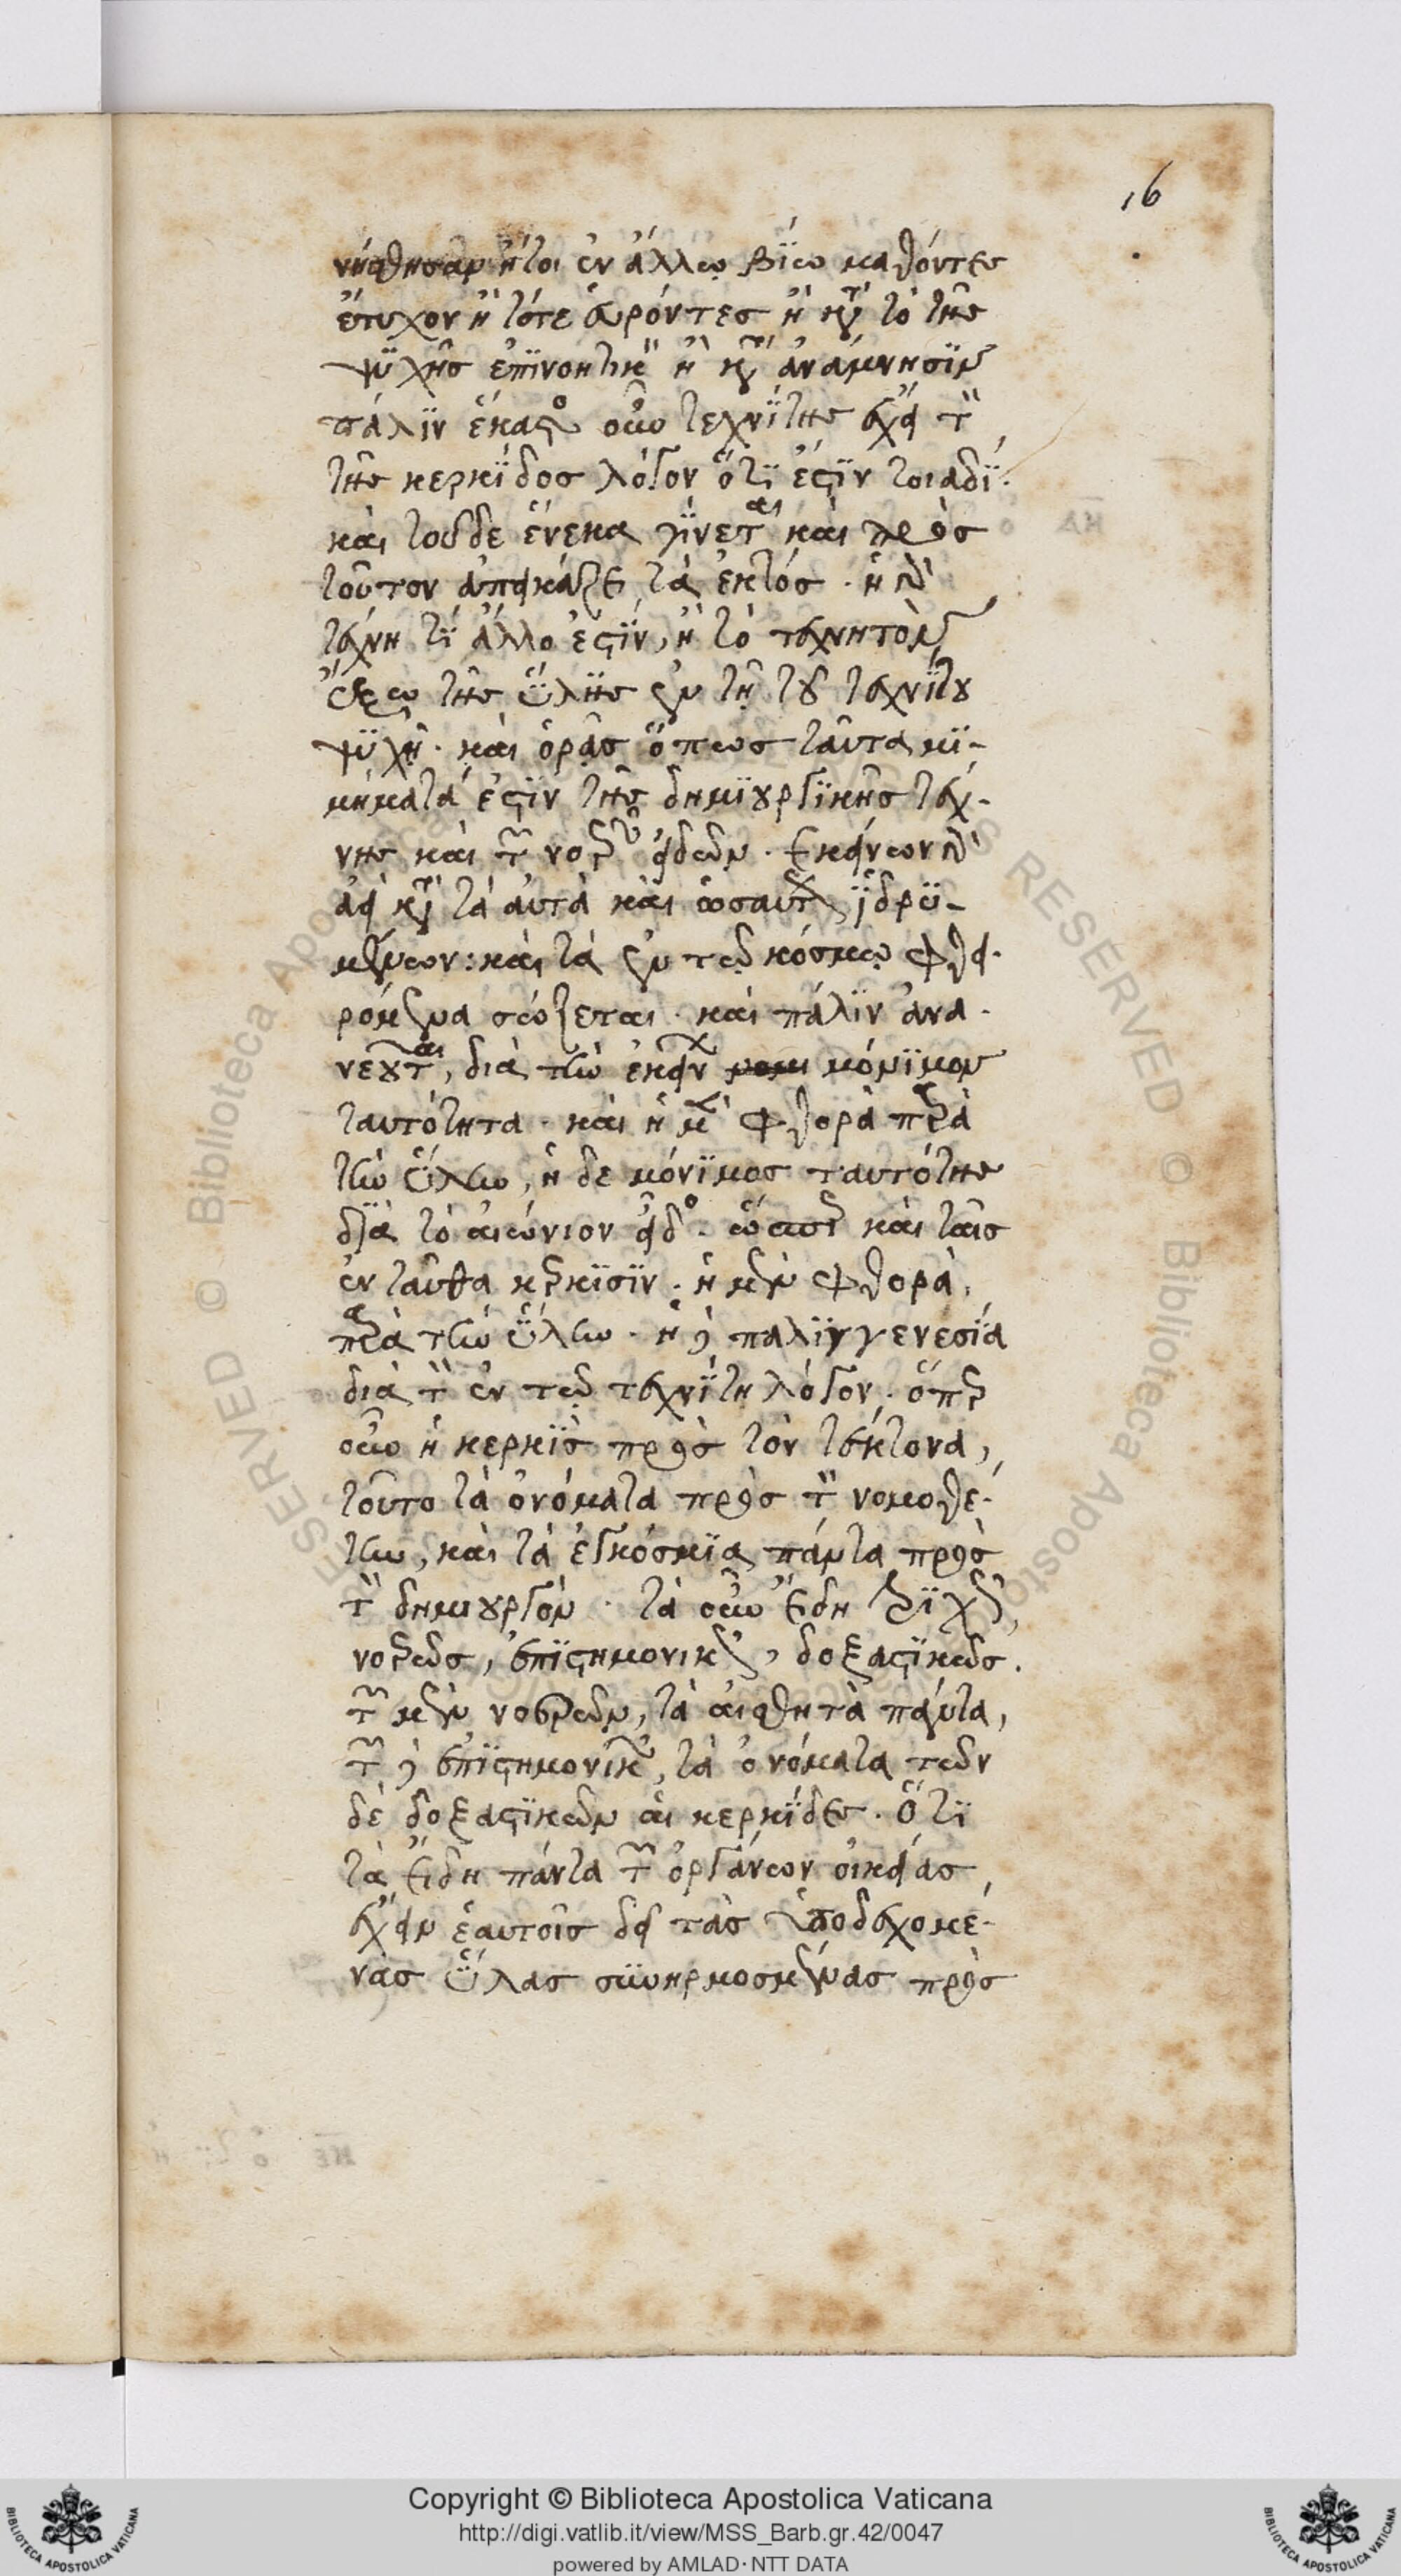 16
νήθησαν ἤτοι ἐν ἄλλῳ βίῳ μαθόντες
ἔτυχον ἢ τότε εὑρόντες ἢ κατὰ τὸ τῆς
ψυχῆς ἐπινοητικὸν ἢ κατὰ ἀνάμνησιν
πάλιν ἕκαστος οὖν τεχνίτης ἔχει τὸν
τῆς κερκίδος λόγον ὅτι ἐστὶν τοιαδί·
καὶ τοῦδε ἕνεκα γίνεται καὶ πρὸς
τοῦτον ἀπεικάζει τὰ ἐκτός· ἡ γὰρ
τέχνη τί ἄλλο ἐστίν, ἢ τὸ τεχνητὸν
ἔξω τῆς ὕλης ἐν τῇ τοῦ τεχνίτου
ψυχῇ· καὶ ὁρᾷς ὅπως ταῦτα μι-
μήματά ἐστιν τῆς δημιουργικῆς τέχ-
νης καὶ τῶν νοερῶν εἰδῶν· ἐκείνων γὰρ
ἀεὶ κατὰ τὰ αὐτὰ καὶ ὡσαύτως ἱδρυ-
μένων: καὶ τὰ ἐν τῷ κόσμῳ φθει-
ρόμενα σώζεται· καὶ πάλιν ἀνα-
νεοῦται, διὰ τὴν ἐκείνων μόνιμον
ταυτότητα· καὶ ἡ μὲν φθορὰ παρὰ
τὴν ὕλην, ἡ δὲ μόνιμος ταυτότης
διὰ τὸ αἰώνιον εἶδος· ὥσπερ καὶ ταῖς
ἐνταῦθα κερκίσιν· ἡ μὲν φθορὰ,
παρὰ τὴν ὕλην· ἡ δὲ παλιγγενεσία
διὰ τὸν ἐν τῷ τεχνίτῃ λόγον· ὅπερ
οὖν ἡ κερκὶς πρὸς τὸν τέκτονα,
τοῦτο τὰ ὀνόματα πρὸς τὸν νομοθέ-
την, καὶ τὰ ἐγκόσμια πάντα πρὸς
τὸν δημιουργόν· τὰ οὖν εἴδη τριχῶς,
νοερῶς, ἐπιστημονικῶς, δοξαστικῶς.
τῶν μὲν νοερῶν, τὰ αἰσθητὰ πάντα,
τῶν δὲ ἐπιστημονικῶν, τὰ ὀνόματα τῶν
δὲ δοξαστικῶν αἱ κερκίδες· Ὅτι
τὰ εἴδη πάντα τῶν ὀργάνων οἰκείας
ἔχειν ἑαυτοῖς δεῖ τὰς ὑποδεχομέ-
νας ὕλας συνηρμοσμένας πρὸς
Copyright © Biblioteca Apostolica Vaticana
http://digi.vatlib.it/view/MSS_Barb.gr.42/0047
powered by AMLAD·NTT DATA